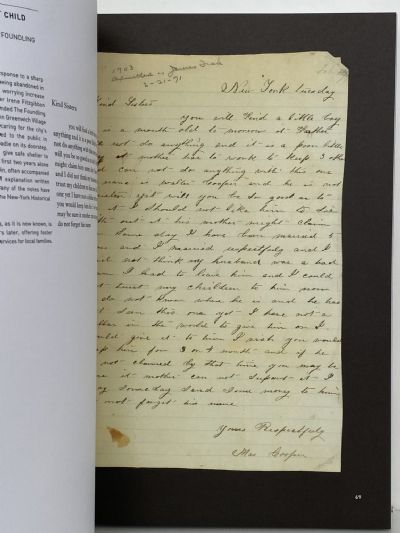 T CHILD
FOUNDLING
sponse to a sharp
being abandoned in
worrying increase
er Irene Fitzgibbon
nded The Founding
n Greenwich Village
caring for the city's
ed to the public in
adle on its doorstep.
give safe shelter to
first two years alone
n, often accompanied
explanation written
any of the notes have
he New-York Historical
, as it is now known, is
rs later, offering foster
ervices for local families.
Kind Sisters
you will find a
anything and it is a
but do anything with
will you be so good
might claim him
and I did not think
trust my children to
one yet I have not a
would you keep him
may be sure it mother
do not forget his name
1903
James Fish
2-21-71
New York Tuesday
ind Sisters
you will find a little boy
is a month old to morrow it Father
not do anything and it is a poor little
it mother has to work to keep 3 others
d can not do anything with this one
name is Walter Cooper and he is not
isten yet will you be so good as to
it I should not like him to die
th out it his mother might claim
some day I have been married 5
rs and I married respectfully and I
id not think my husband was a bad
I had to leave him and I could
t trust my children to him now
do not know where he is and he has
t seen this one yet I have not a
llar in the world to give him or I
uld give it to him I wish you would
ep him for 3 or 4 month and if he
not claimed by that time you may be
re it mother can not support it I
ay someday send some money to him
not forget his name
Yours Respectfuly
Mrs Cooper
69